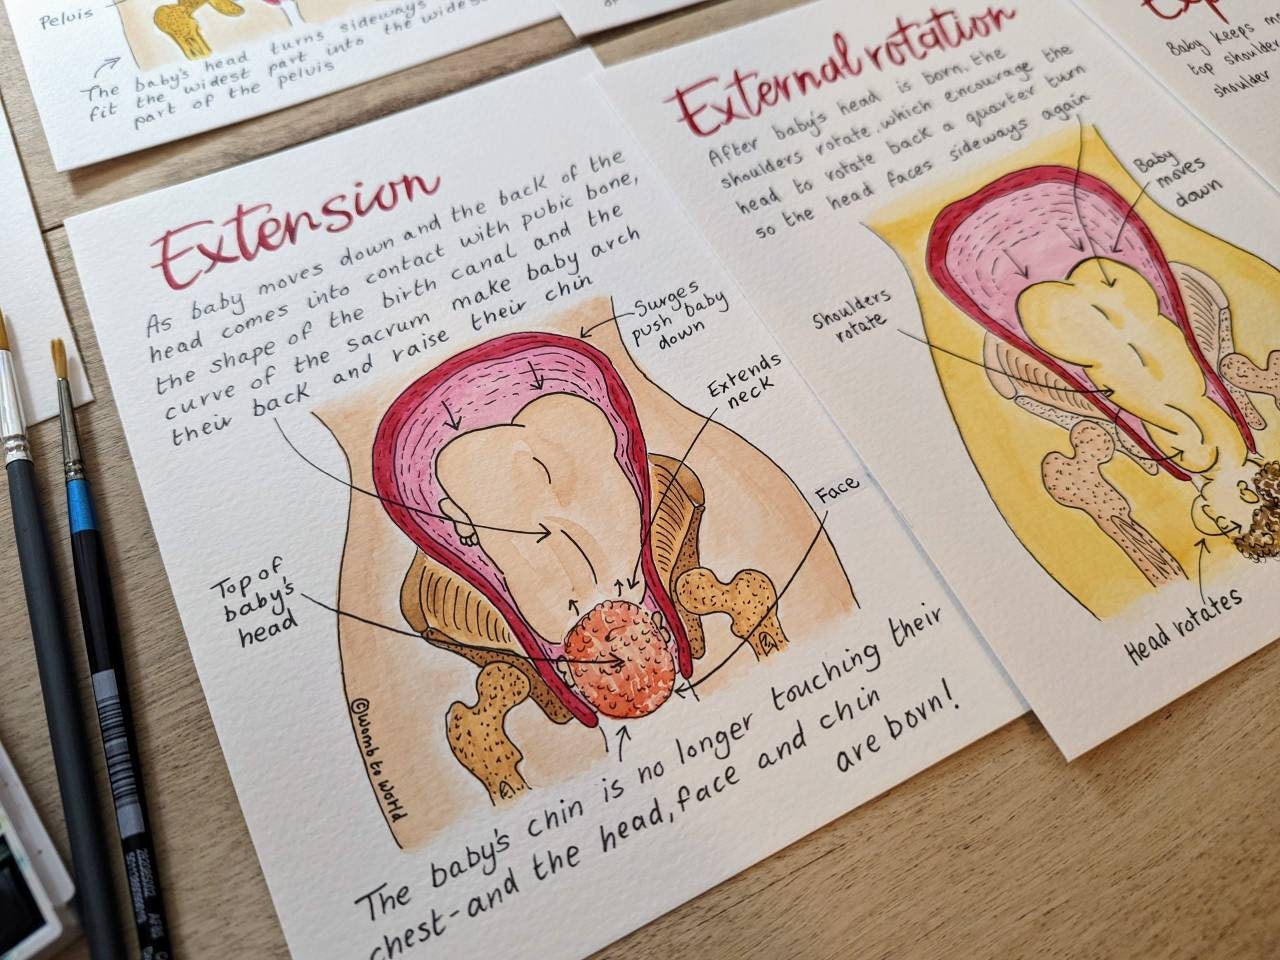 Pelvis
The baby's head turns sideways
fit the widest part into the widest
part of the pelvis
Extension
As baby moves down and the back of the
head comes into contact with pubic bone,
the shape of the birth canal and the
curve of the sacrum make baby arch
their back and raise their chin
Surges
push baby
down
Extends
neck
Face
Top of
baby's
head
©Womb to World
The baby's chin is no longer touching their
chest-and the head, face and chin
are born!
External rotation
After baby's head is born, the
shoulders rotate, which encourage the
head to rotate back a quarter turn
so the head faces sideways again
Baby
moves
down
Shoulders
rotate
Head rotates
Baby keeps
top shoulder
shoulder